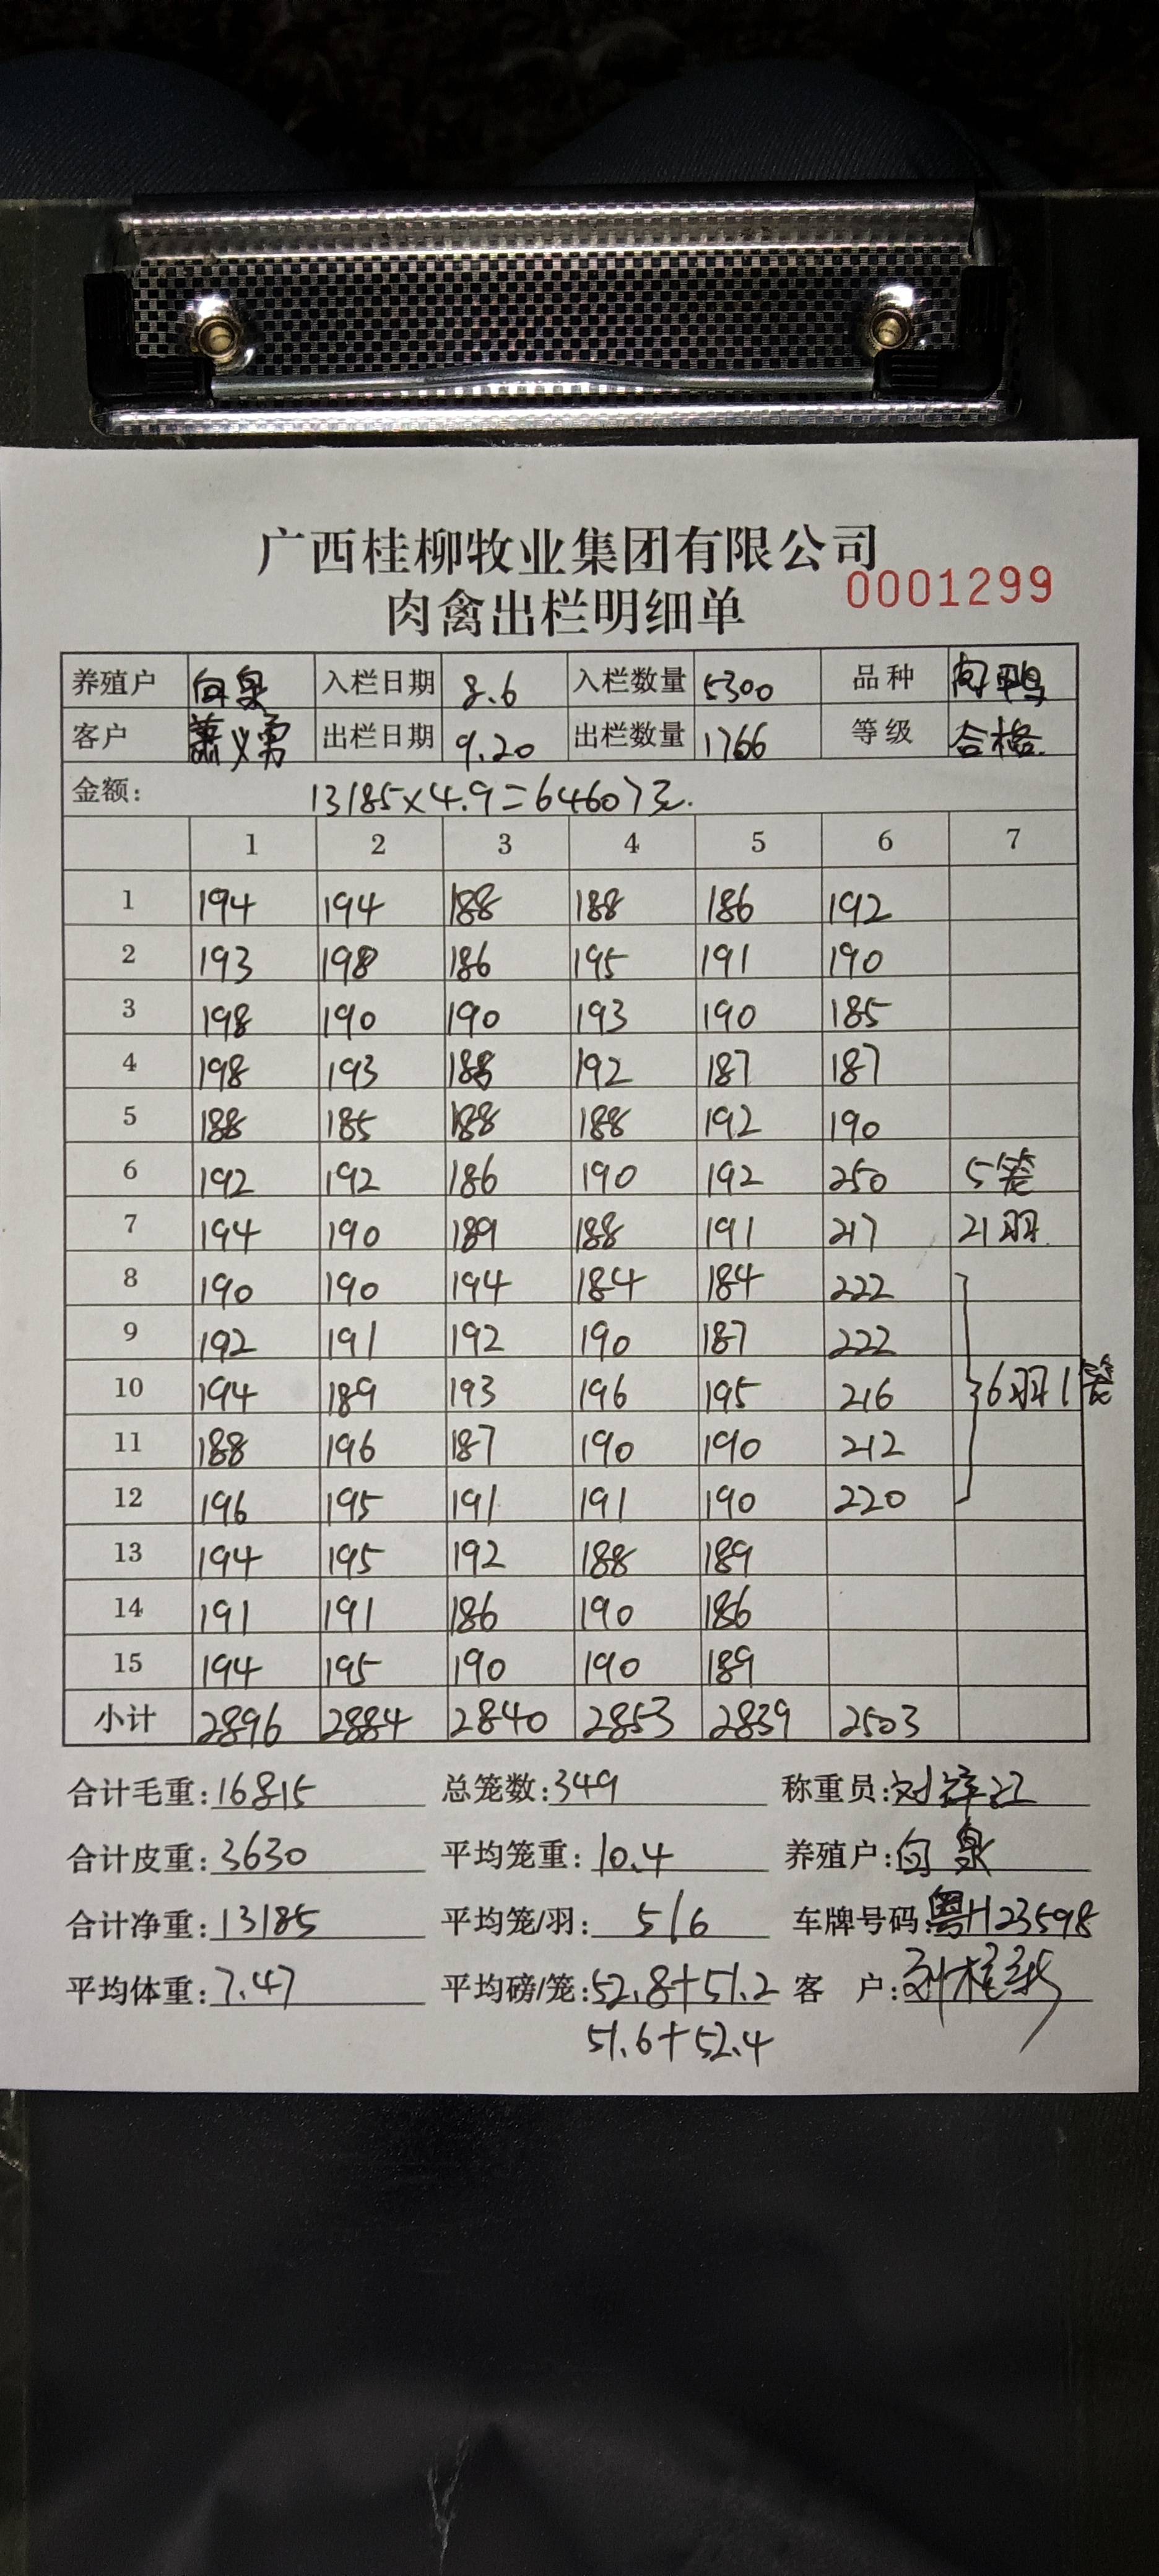 广西桂柳牧业集团有限公司
肉禽出栏明细单 0001299
养殖户 向泉 入栏日期 8.6 入栏数量 5300 品种 鸭
客户 萧义勇 出栏日期 9.20 出栏数量 1766 等级 合格
金额: 13185×4.9=64607元.
1 2 3 4 5 6 7
1 194 194 188 188 186 192
2 193 198 186 195 191 190
3 198 190 190 193 190 185
4 198 193 188 192 187 187
5 188 185 188 188 192 190
6 192 192 186 190 192 250 5笼
7 194 190 189 188 191 217 21羽
8 190 190 194 184 184 222
9 192 191 192 190 187 222
10 194 189 193 196 195 216 6羽1笼
11 188 196 187 190 190 212
12 196 195 191 191 190 220
13 194 195 192 188 189
14 191 191 186 190 186
15 194 195 190 190 189
小计 2896 2884 2840 2853 2839 2503
合计毛重: 16815 总笼数: 349 称重员: 刘
合计皮重: 3630 平均笼重: 10.4 养殖户: 向泉
合计净重: 13185 平均笼/羽: 5/6 车牌号码: 粤H23598
平均体重: 7.47 平均磅/笼: 52.8+51.2 客 户:
51.6+52.4